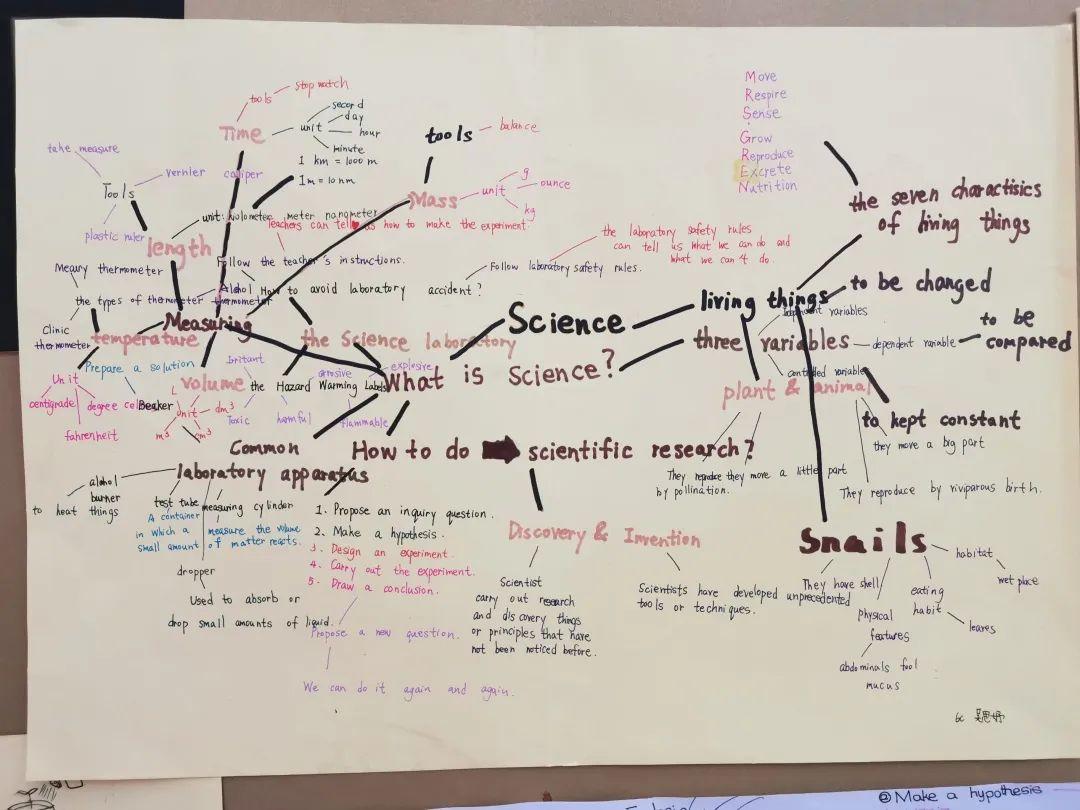 Science
What is Science?
Measuring
Time
tools
stop match
unit
second
day
hour
minute
length
Tools
take measure
vernier caliper
plastic ruler
unit: kolometer meter nanometer
1 km = 1000 m
1m = 10 nm
Mass
tools
balance
unit
g
ounce
kg
temperature
the types of thermometer
Meary thermometer
Alohol
thermometer
Clinic
thermometer
Unit
centigrade
degree
fahrenheit
volume
Prepare a solution
Beaker
unit
L
dm³
m³
the Science laboratory
How to avoid laboratory accident?
Follow the teacher's instructions.
teachers can tell us how to make the experiment.
Follow laboratory safety rules.
the laboratory safety rules
can tell us what we can do and
what we can't do.
the Hazard Warming Labels
Irritant
explosive
Toxic
harmful
flammable
Common
laboratory apparatus
alohol
burner
to heat things
test tube
A container
in which a
small amount of matter reacts.
measuring cylinder
measure the volume
dropper
Used to absorb or
drop small amounts of liquid.
How to do scientific research?
1. Propose an inquiry question.
2. Make a hypothesis.
3. Design an experiment.
4. Carry out the experiment.
5. Draw a conclusion.
Propose a new question.
We can do it again and again.
Discovery & Invention
Scientist
carry out research
and discovery things
or principles that have
not been noticed before.
Scientists have developed unprecedented
tools or techniques.
living things
the seven charactisics
of living things
Move
Respire
Sense
Grow
Reproduce
Excrete
Nutrition
three variables
variables
to be changed
dependent variable
to be
compared
to kept constant
plant & animal
They reproduce
by pollination.
they move a little part
they move a big part
They reproduce by riviparous birth.
Snails
They have shell
physical
features
abdominals fool
mucus
eating
habit
leares
habitat
wet place
6c
@ Make a hypothesis